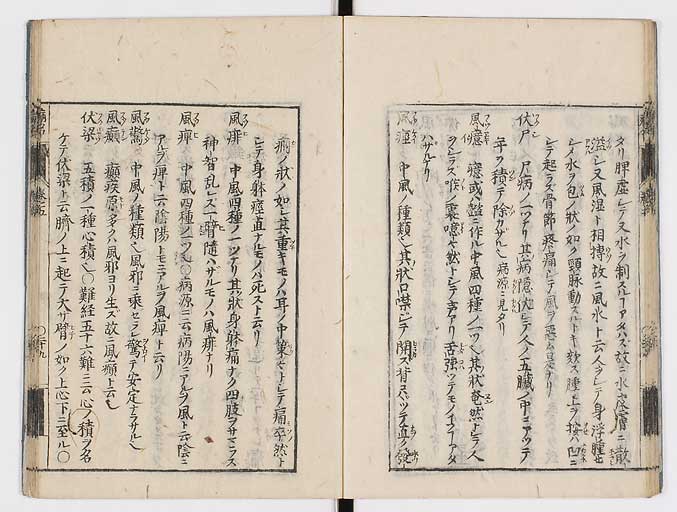 タリ脾虚シテ水ヲ制スルフアタハズ故ニ水皮膚ニ散
溢シ又風湿ト相搏故ニ風水ト云人ヲシテ身浮腫
シメ水ヲ包ノ状ノ如ク頸脉動スルトキ欬ス腫上ヲ按ハ凹ニ
シテ起ラズ骨節疼痛シテ風ヲ悪ム是ナリ
伏尸 尸病ノ一ツナリ其病隠伏シテ人ノ五臓ノ中ニアツテ
年ヲ積テ除カザル也病源ニ見タリ
風癔 癔或ハ懿ニ作ル中風四種ノ一ツ也其状奄然トシテ人
シラズ喉ノ裏噫々然トシテ声アリ舌強ツテモノイフフアタ
ハザルナリ
風痙 中風ノ種類也其状口噤シテ開ス背
癇ノ状ノ如シ其重キモノハ耳ノ中策々トシテ痛卒然ト
シテ身躰痙直ナルモノハ死スト云リ
風痱 中風四種ノ一ツナリ其状身躰痛ナク四肢ヲサマラス
神智乱レス一臂随ハザルモノハ風痱ナリ
風痺 中風四種ノ一ツ也〇病源ニ云病陽ニアルヲ風ト云陰ニ
アルヲ痺ト云陰陽トモニアルヲ風痺ト云リ
風驚 中風ノ種類也風邪ニ乗セラレ驚テ安定ナラサル也
風癲 癲疾原多クハ風邪ヨリ生ズ故ニ風癲ト云也
伏梁 五積ノ一種心積也〇難経五十六難ニ云心ノ積ヲ名
ケテ伏梁ト云臍ノ上ニ起テ大サ臂ノ如ク上心下ニ至ル〇